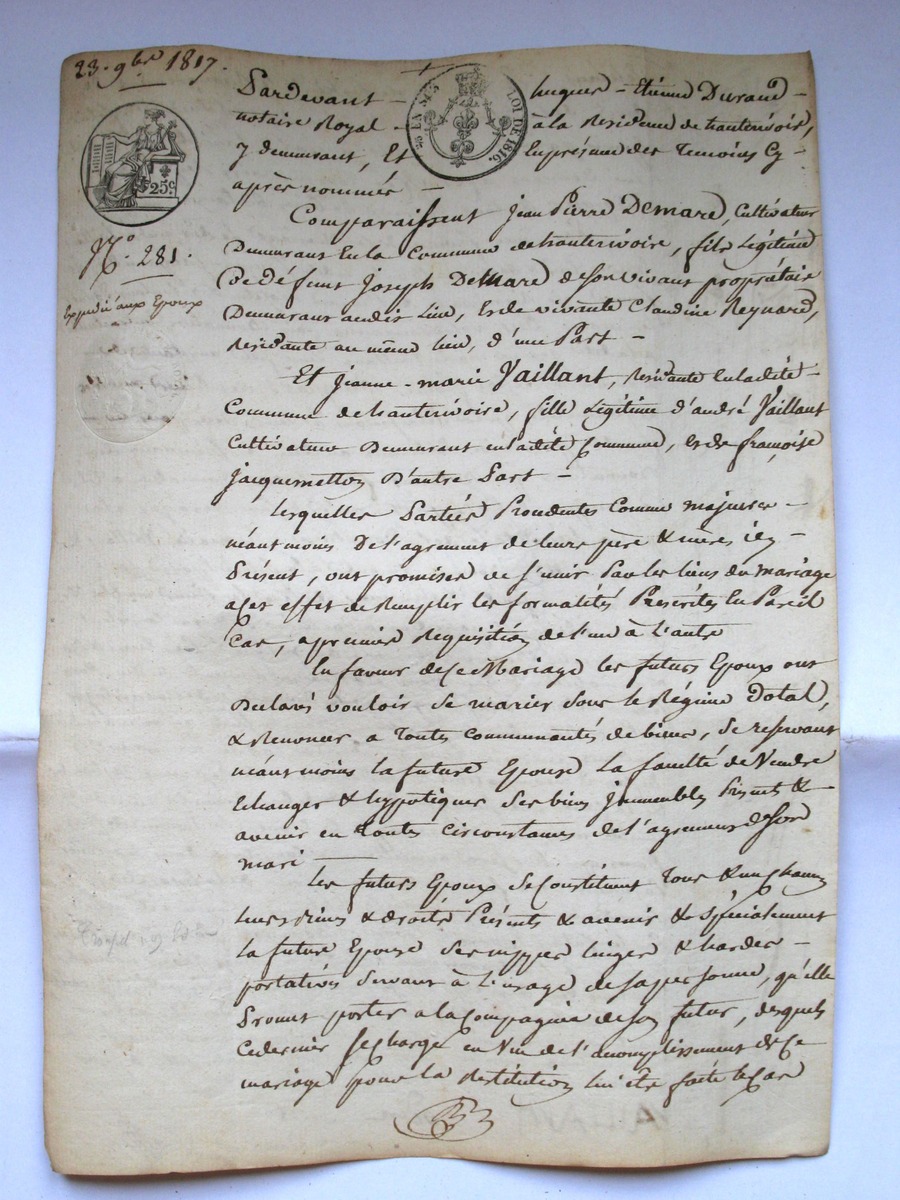 23. 9bre 1817.
25c.
LOI DE 1816.
N.o 281.
Expedié aux Epoux
Pardevant - hugues - Etiénne Durand -
notaire Royal - à la Residence de hauterivoire,
y demeurant, Et En présence des Temoins Cy -
après nommés -
Comparaissent Jean Pierre Demare, Cultivateur
Demeurant En la Commune de hauterivoire, fils Légitime
De défunt Joseph DeMare de son vivant propriétaire
Demeurant audit Lieu, Et de vivante Claudine Reynard,
Residante au même lieu, d'une Part -
Et Jeanne - marie Vaillant, Residante En ladite -
Commune de hauterivoire, fille Légitime d'andré Vaillant
Cultivateur Demeurant en ladite Commune, Et de françoise
Jacquemetton D'autre Part -
Lesquelles Partiés Procedantes Comme majeures -
néantmoins De l'agrement de leurs père & mères icy -
Présent, ont promises de s'unir Par les liens du Mariage
a Cet effet de Remplir les formalités Prescrites En Pareil
Cas, a premier Requisition de l'une à l'autre
En faveur de Ce Mariage les futurs Epoux ont
Declaré vouloir Se marier Sous le Régime Dotal,
& Renoncer a Toutes Communautés de biens, Se reservant
néantmoins la future Epouse La faculté de Vendre
Echanger & hypotéquer Ses biens Jmmeubles Présents &
avenir en Toutes Circonstances de l'agrement de Son
mari -
Les futurs Epoux Se Constituent Tous & un Chacun
leurs biens & droits Présents & avenir & Spécialement
la future Epouse Ses nippes linges & hardes -
portatives Servant à L'usage de sa personne, qu'elle
Promet porter a la Compagnie de Son futur, desquels
Ce dernier Se Charge en Vue de l'accomplissement de Ce
mariage pour la Restitution lui être faite le Cas